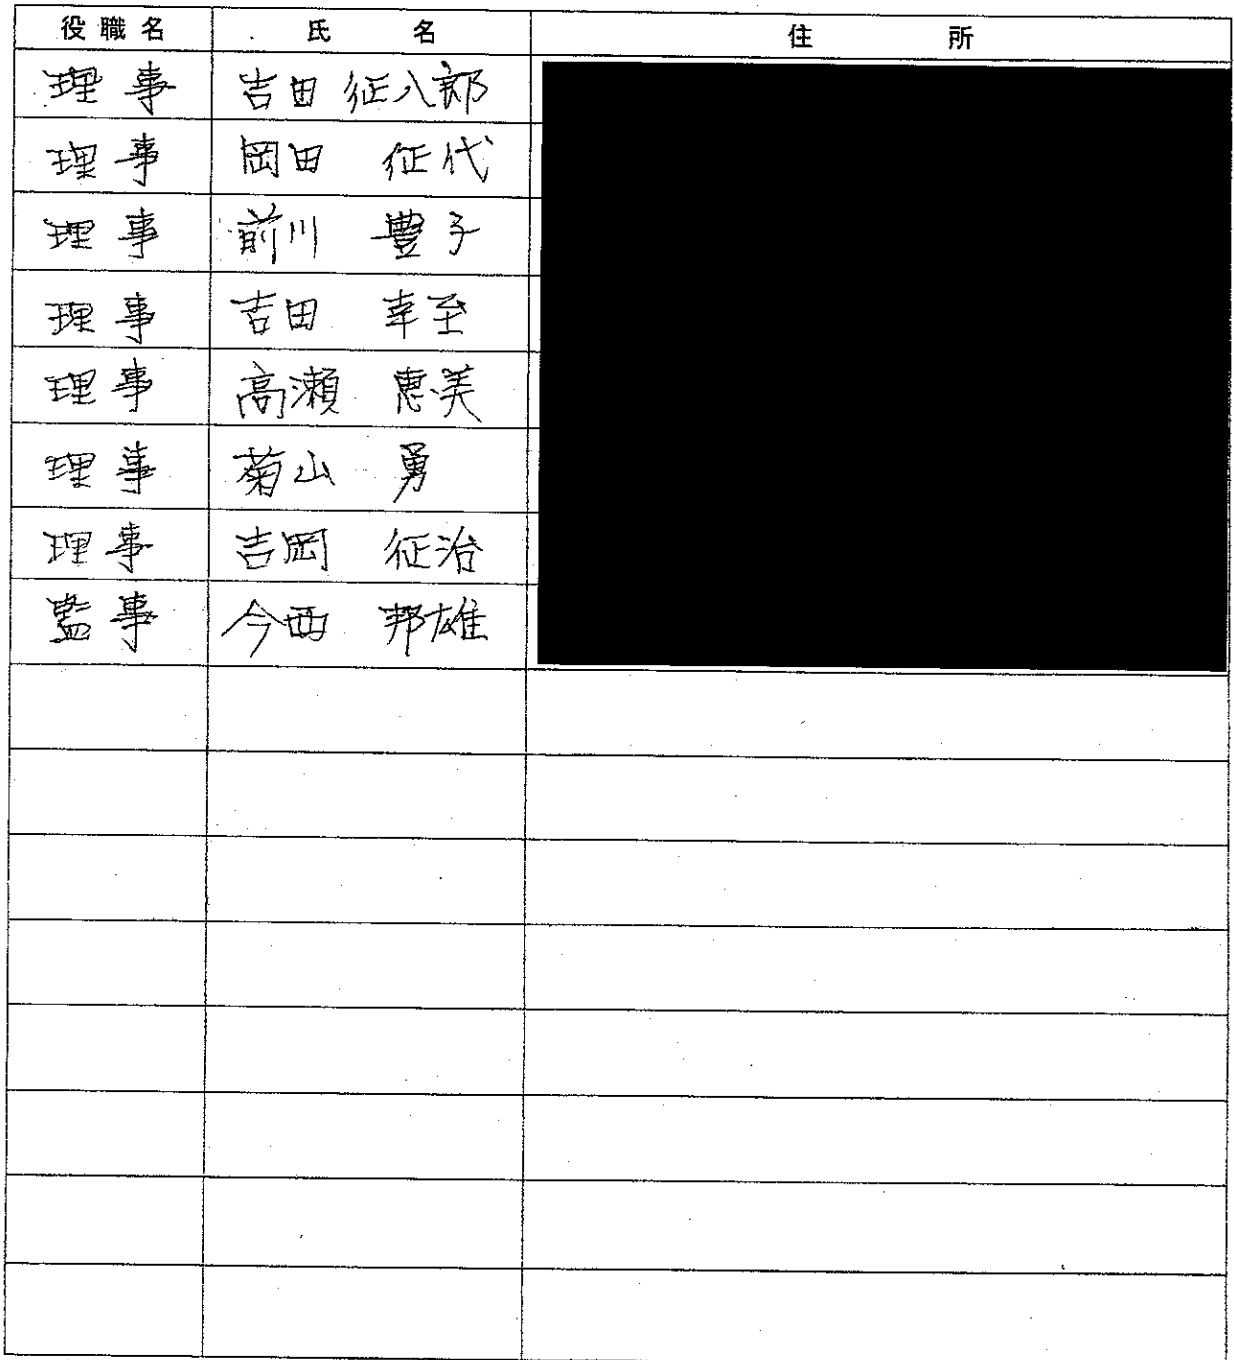 役職名 氏名 住所
理事 吉田 征八郎
理事 岡田 征代
理事 前川 豊子
理事 吉田 幸至
理事 高瀬 恵美
理事 菊山 勇
理事 吉岡 征治
監事 今西 邦雄